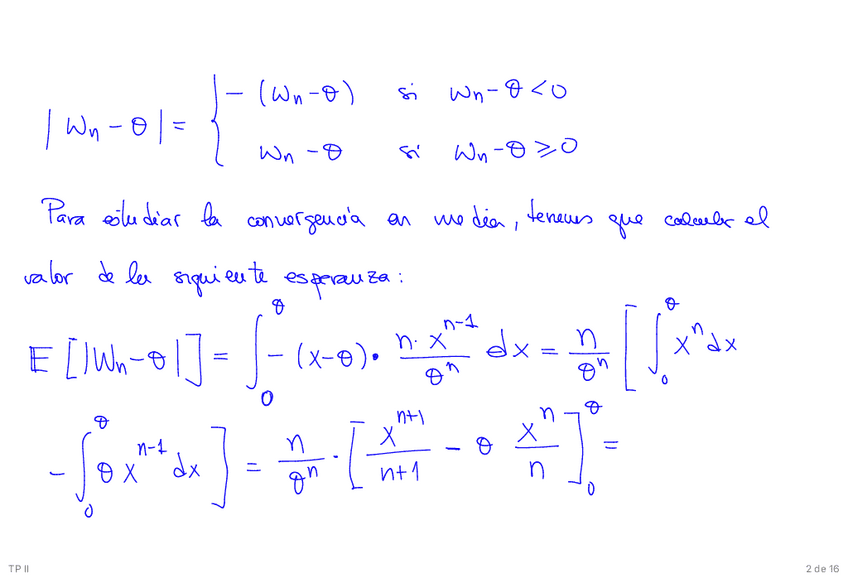 |Wn - θ| = { - (Wn - θ) si Wn - θ < 0
Wn - θ si Wn - θ ⩾ 0
Para estudiar la convergencia en media, tenemos que calcular el
valor de la siguiente esperanza:
E [|Wn - θ|] = ∫_0^θ - (x - θ) · n · x^{n-1} / θ^n dx = n / θ^n [ ∫_0^θ x^n dx
- ∫_0^θ θ x^{n-1} dx ] = n / θ^n · [ x^{n+1} / n+1 - θ x^n / n ]_0^θ =
TP II
2 de 16